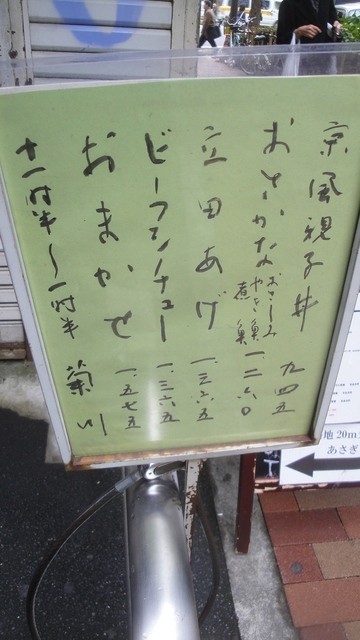 京風親子丼 九四五
おさかな おさしみ やき魚 煮魚 一二六〇
立田あげ 一.三六五
ビーフシチュー 一.三六五
おまかせ 一.五七五
十一時半〜一時半 菊川
地 20m
あさぎ